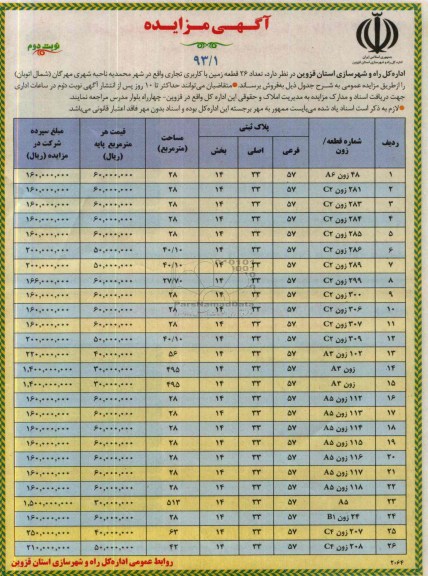 آگهی مزایده
نوبت دوم
۹۳/۱
اداره کل راه و شهرسازی استان قزوین در نظر دارد، تعداد ۲۶ قطعه زمین با کاربری تجاری واقع در شهر محمدیه ناحیه شهری مهرگان (شمال اتوبان)
را از طریق مزایده عمومی به شرح جدول ذیل به فروش برساند. متقاضیان می‌توانند حداکثر تا ۱۰ روز پس از انتشار آگهی نوبت دوم در ساعات اداری
جهت دریافت اسناد و مدارک مزایده به مدیریت املاک و حقوقی این اداره کل واقع در قزوین- چهارراه بلوار مدرس مراجعه نمایند.
لازم به ذکر است اسناد یاد شده می‌بایست ممهور به مهر برجسته این اداره کل بوده و اسناد بدون مهر فاقد اعتبار قانونی می‌باشد.
ردیف شماره قطعه/زون پلاک ثبتی فرعی اصلی بخش مساحت (مترمربع) قیمت هر مترمربع پایه (ریال) مبلغ سپرده شرکت در مزایده (ریال)
۱ ۴۸ زون A۶ ۵۷ ۳۳ ۱۴ ۲۸ ۶۰,۰۰۰,۰۰۰ ۱۶۰,۰۰۰,۰۰۰
۲ ۲۸۱ زون C۲ ۵۷ ۳۳ ۱۴ ۲۸ ۶۰,۰۰۰,۰۰۰ ۱۶۰,۰۰۰,۰۰۰
۳ ۲۸۳ زون C۲ ۵۷ ۳۳ ۱۴ ۲۸ ۶۰,۰۰۰,۰۰۰ ۱۶۰,۰۰۰,۰۰۰
۴ ۲۸۴ زون C۲ ۵۷ ۳۳ ۱۴ ۲۸ ۶۰,۰۰۰,۰۰۰ ۱۶۰,۰۰۰,۰۰۰
۵ ۲۸۵ زون C۲ ۵۷ ۳۳ ۱۴ ۲۸ ۶۰,۰۰۰,۰۰۰ ۱۶۰,۰۰۰,۰۰۰
۶ ۲۸۶ زون C۲ ۵۷ ۳۳ ۱۴ ۴۰/۱۰ ۵۰,۰۰۰,۰۰۰ ۲۰۰,۰۰۰,۰۰۰
۷ ۲۸۹ زون C۲ ۵۷ ۳۳ ۱۴ ۴۰/۱۰ ۵۰,۰۰۰,۰۰۰ ۲۰۰,۰۰۰,۰۰۰
۸ ۲۹۹ زون C۲ ۵۷ ۳۳ ۱۴ ۲۷/۷۰ ۶۰,۰۰۰,۰۰۰ ۱۶۶,۰۰۰,۰۰۰
۹ ۳۰۰ زون C۲ ۵۷ ۳۳ ۱۴ ۲۸ ۶۰,۰۰۰,۰۰۰ ۱۶۰,۰۰۰,۰۰۰
۱۰ ۳۰۶ زون C۲ ۵۷ ۳۳ ۱۴ ۲۸ ۶۰,۰۰۰,۰۰۰ ۱۶۰,۰۰۰,۰۰۰
۱۱ ۳۰۷ زون C۲ ۵۷ ۳۳ ۱۴ ۲۸ ۶۰,۰۰۰,۰۰۰ ۱۶۰,۰۰۰,۰۰۰
۱۲ ۳۰۹ زون C۲ ۵۷ ۳۳ ۱۴ ۴۰/۱۰ ۵۰,۰۰۰,۰۰۰ ۲۰۰,۰۰۰,۰۰۰
۱۳ ۱۰۲ زون A۳ ۵۷ ۳۳ ۱۴ ۵۶ ۴۰,۰۰۰,۰۰۰ ۲۲۰,۰۰۰,۰۰۰
۱۴ زون A۳ ۵۷ ۳۳ ۱۴ ۴۹۵ ۳۰,۰۰۰,۰۰۰ ۱,۴۰۰,۰۰۰,۰۰۰
۱۵ زون A۳ ۵۷ ۳۳ ۱۴ ۴۹۵ ۳۰,۰۰۰,۰۰۰ ۱,۴۰۰,۰۰۰,۰۰۰
۱۶ ۱۱۲ زون A۵ ۵۷ ۳۳ ۱۴ ۲۸ ۶۰,۰۰۰,۰۰۰ ۱۶۰,۰۰۰,۰۰۰
۱۷ ۱۱۳ زون A۵ ۵۷ ۳۳ ۱۴ ۲۸ ۶۰,۰۰۰,۰۰۰ ۱۶۰,۰۰۰,۰۰۰
۱۸ ۱۱۴ زون A۵ ۵۷ ۳۳ ۱۴ ۲۸ ۶۰,۰۰۰,۰۰۰ ۱۶۰,۰۰۰,۰۰۰
۱۹ ۱۱۵ زون A۵ ۵۷ ۳۳ ۱۴ ۲۸ ۶۰,۰۰۰,۰۰۰ ۱۶۰,۰۰۰,۰۰۰
۲۰ ۱۱۶ زون A۵ ۵۷ ۳۳ ۱۴ ۲۸ ۶۰,۰۰۰,۰۰۰ ۱۶۰,۰۰۰,۰۰۰
۲۱ ۱۱۷ زون A۵ ۵۷ ۳۳ ۱۴ ۲۸ ۶۰,۰۰۰,۰۰۰ ۱۶۰,۰۰۰,۰۰۰
۲۲ ۱۱۸ زون A۵ ۵۷ ۳۳ ۱۴ ۲۸ ۶۰,۰۰۰,۰۰۰ ۱۶۰,۰۰۰,۰۰۰
۲۳ A۵ ۵۷ ۳۳ ۱۴ ۵۱۳ ۳۰,۰۰۰,۰۰۰ ۱,۵۰۰,۰۰۰,۰۰۰
۲۴ ۲۴ زون B۱ ۵۷ ۳۳ ۱۴ ۲۸ ۶۰,۰۰۰,۰۰۰ ۱۶۰,۰۰۰,۰۰۰
۲۵ ۲۰۷ زون C۴ ۵۷ ۳۳ ۱۴ ۶۳ ۴۰,۰۰۰,۰۰۰ ۲۵۰,۰۰۰,۰۰۰
۲۶ ۲۰۸ زون C۴ ۵۷ ۳۳ ۱۴ ۴۲ ۵۰,۰۰۰,۰۰۰ ۲۱۰,۰۰۰,۰۰۰
۲۰۶۴ روابط عمومی اداره کل راه و شهرسازی استان قزوین